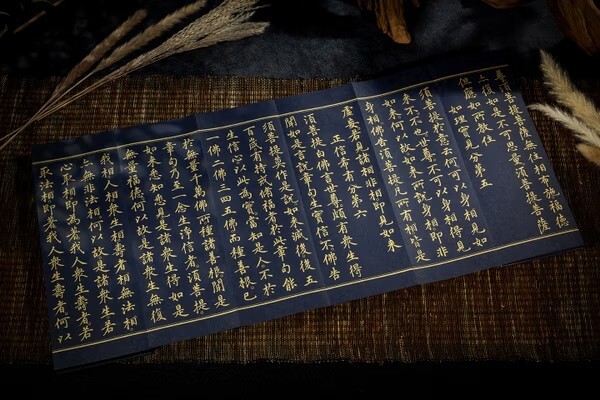 尊須菩提菩薩無住相布施福德
亦復如是不可思量須菩提菩薩
但應如所教住
如理實見分第五
須菩提於意云何可以身相見如
來不不也世尊不可以身相得見
如來何以故如來所說身相即非
身相佛告須菩提凡所有相皆是
虛妄若見諸相非相即見如來
正信希有分第六
須菩提白佛言世尊頗有眾生得
聞如是言說章句生實信不佛告
須菩提莫作是說如來滅後後五
百歲有持戒修福者於此章句能
生信心以此為實當知是人不於
一佛二佛三四五佛而種善根已
於無量千萬佛所種諸善根聞是
章句乃至一念生淨信者須菩提
如來悉知悉見是諸眾生得如是
無量福德何以故是諸眾生無復
我相人相眾生相壽者相無法相
亦無非法相何以故是諸眾生若
心取相即為著我人眾生壽者若
取法相即著我人眾生壽者何以